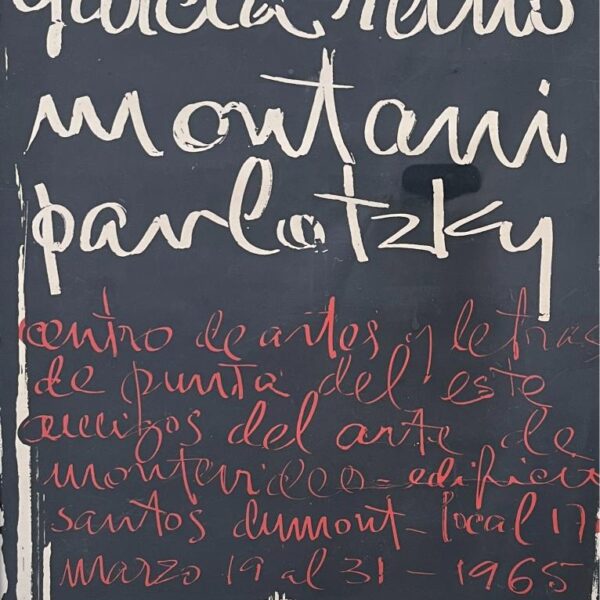 garcía reino
montani
pavlotzky
centro de artes y letras
de punta del este
amigos del arte de
montevideo - edificio
santos dumont - local 17
marzo 19 al 31 - 1965